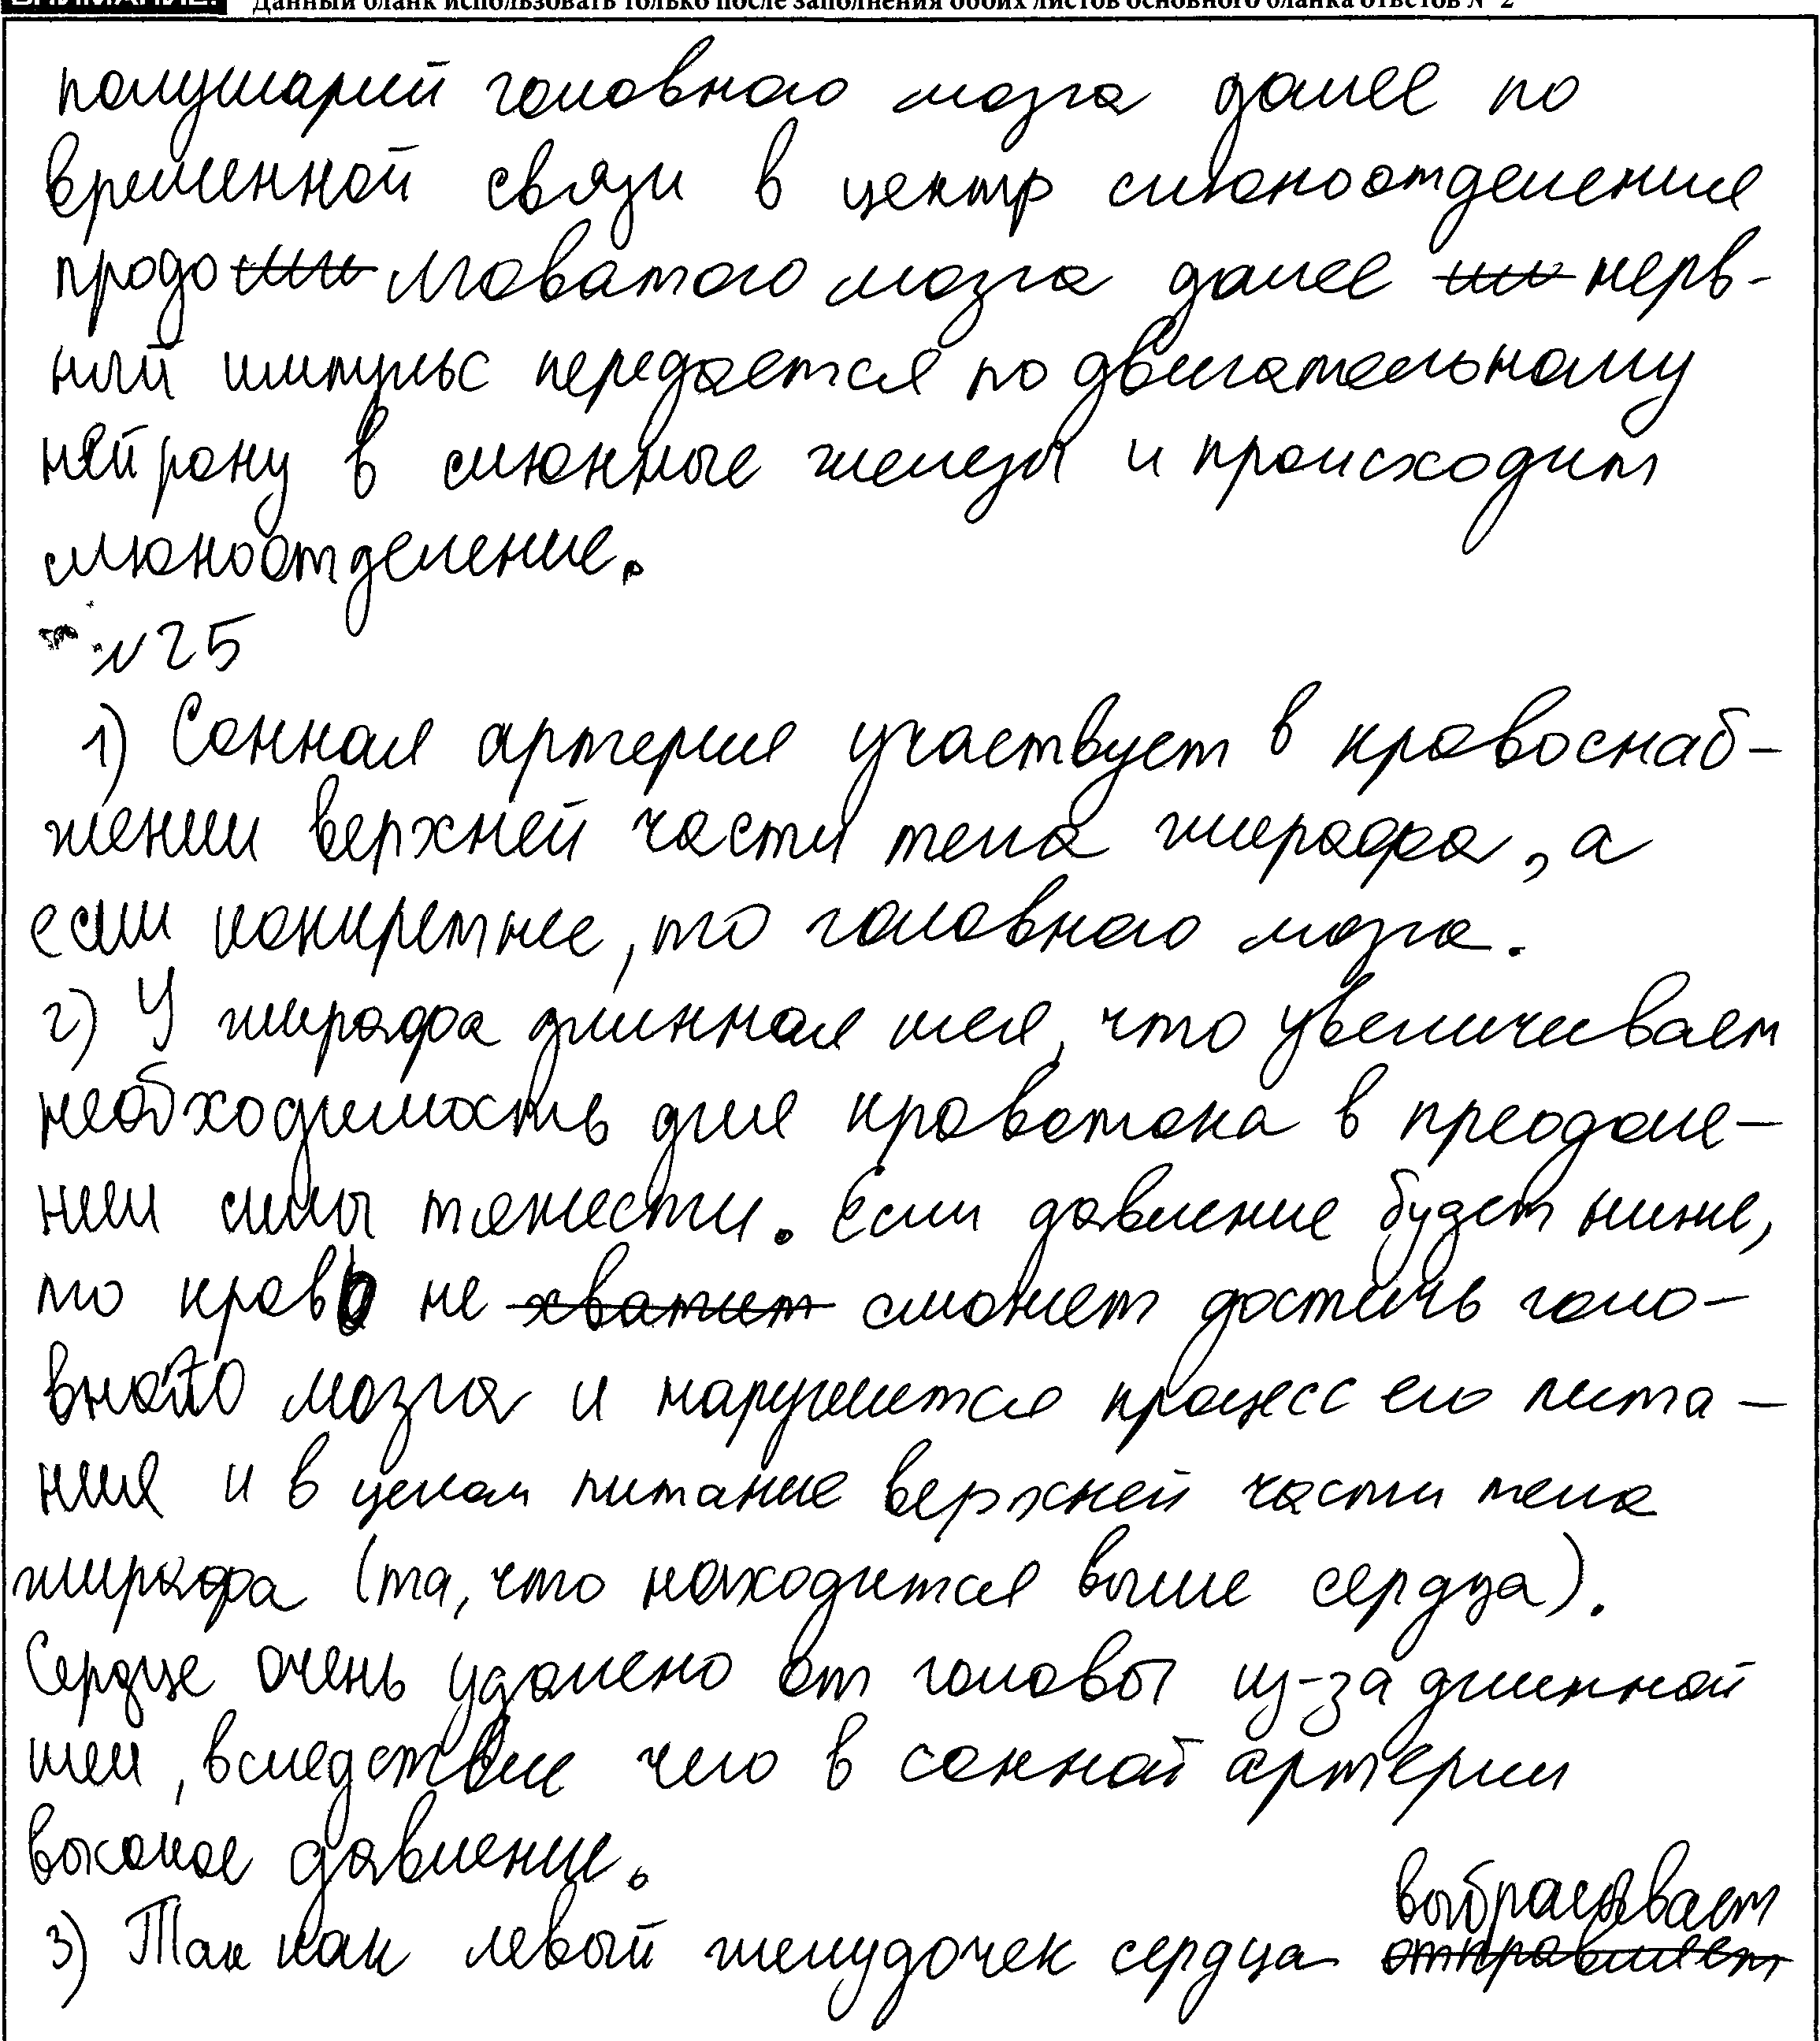 ВНИМАНИЕ! Данный бланк использовать только после заполнения обоих листов основного бланка ответов № 2
полушарий головного мозга далее по
временной связи в центр слюноотделения
продолговатого мозга далее нерв-
ный импульс передается по двигательному
нейрону в слюнные железы и происходит
слюноотделение.
№25
1) Сонная артерия участвует в кровоснаб-
жении верхней части тела жирафа, а
если конкретнее, то головного мозга.
2) У жирафа длинная шея, что увеличивает
необходимость для кровотока в преодоле-
нии силы тяжести. Если давление будет ниже,
то кровь не хватит сможет достичь голо-
вного мозга и нарушится процесс его пита-
ния и в целом питание верхней части тела
жирафа (та, что находится выше сердца).
Сердце очень удалено от головы из-за длинной
шеи, вследствие чего в сонной артерии
высокое давление.
выбрасывает
3) Так как левый желудочек сердца отправляет